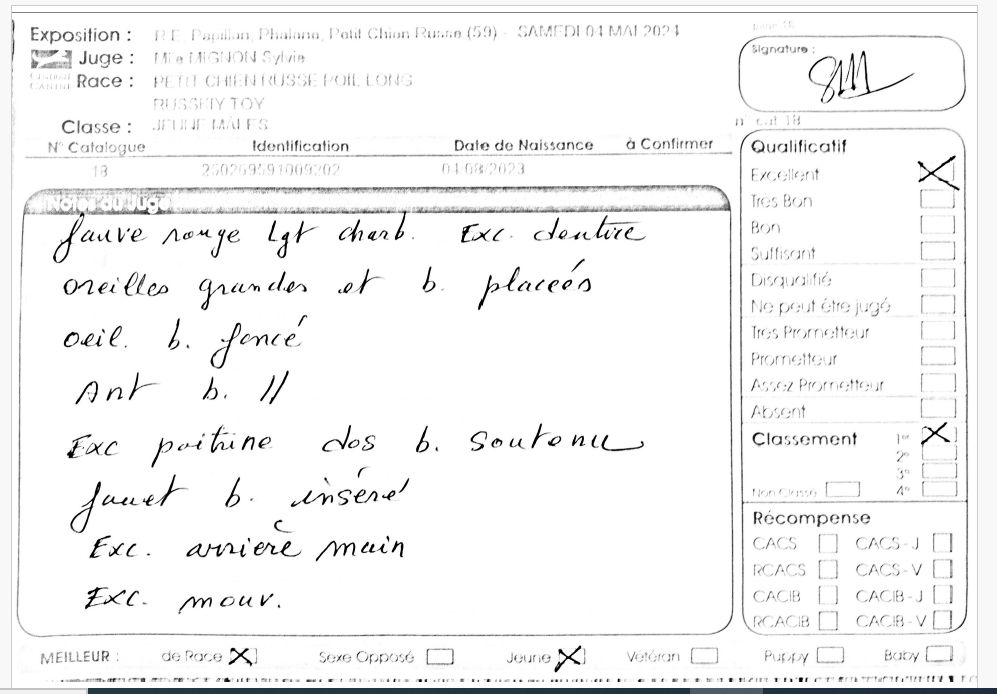 Exposition : R.E. Papillon, Phalène, Petit Chien Russe (59) - SAMEDI 04 MAI 2024
page 18
Juge : Mlle MIGNON Sylvie
Signature :
Race : PETIT CHIEN RUSSE POIL LONG
RUSSKIY TOY
Classe : JEUNE MÂLES
n° cat 18
N° Catalogue Identification Date de Naissance à Confirmer
18 250269591009202 04/08/2023
Notes du Juge
fauve rouge Lgt charb. Exc. dentire
oreilles grandes et b. placéés
oeil. b. foncé
Ant b. //
Exc poitrine dos b. soutenu
fouet b. inséré
Exc. arriere main
Exc. mouv.
Qualificatif
Excellent X
Très Bon
Bon
Suffisant
Disqualifié
Ne peut être jugé
Très Prometteur
Prometteur
Assez Prometteur
Absent
Classement 1er X
2e
3e
Non Classé 4e
Récompense
CACS CACS-J
RCACS CACS-V
CACIB CACIB-J
RCACIB CACIB-V
MEILLEUR : de Race X Sexe Opposé Jeune X Vétéran Puppy Baby